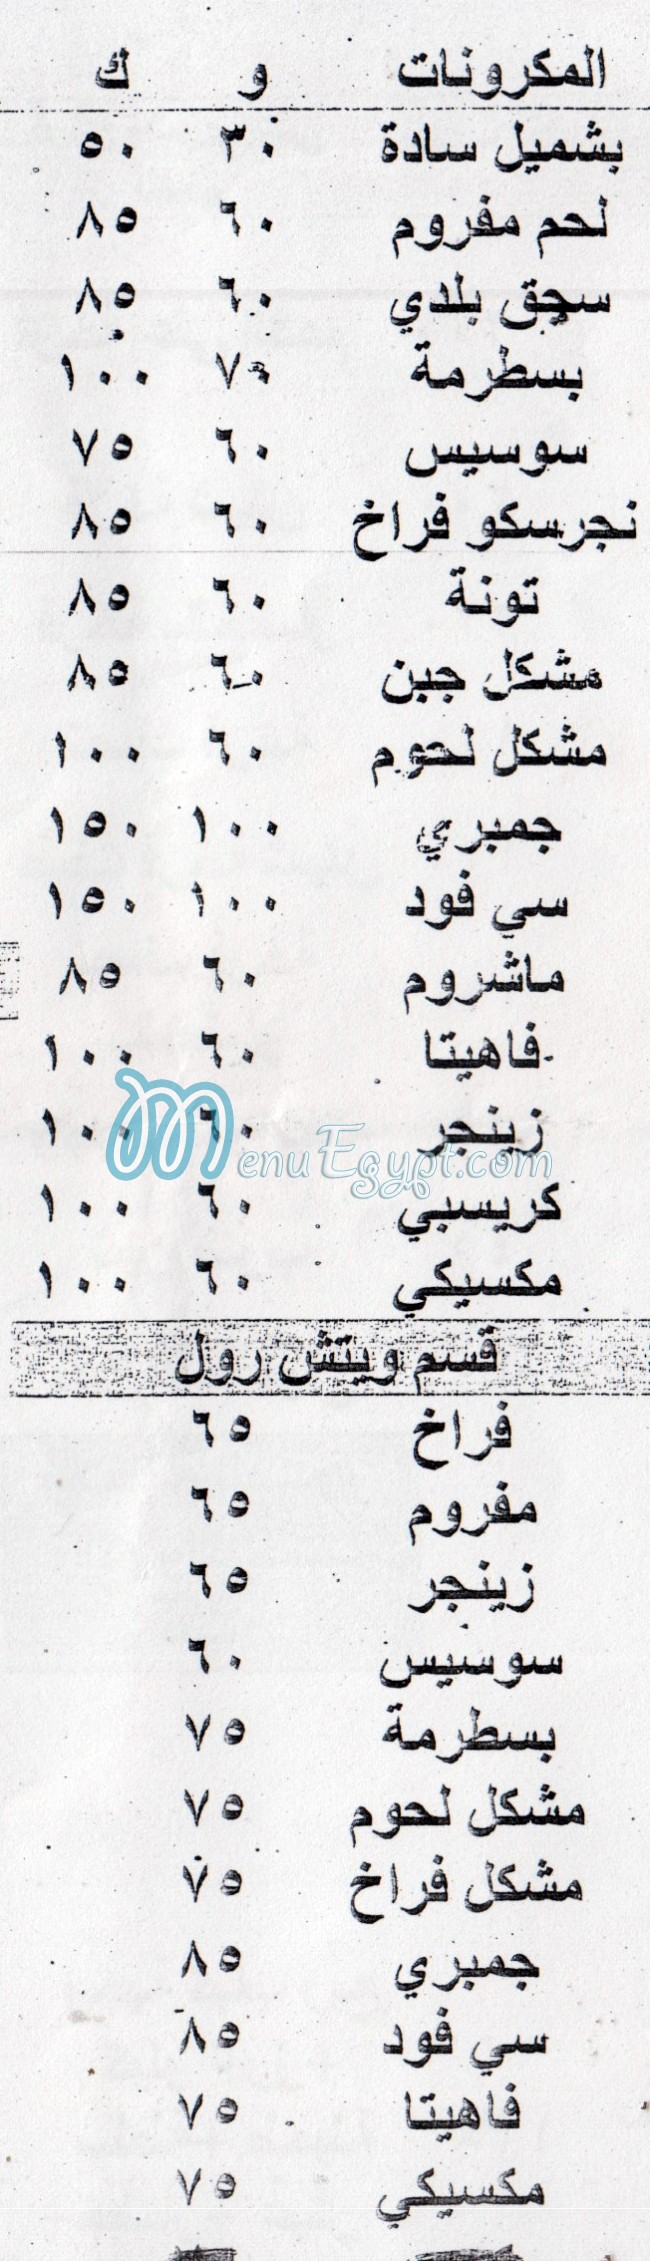 المكرونات و ك
بشميل سادة ٣٠ ٥٠
لحم مفروم ٦٠ ٨٥
سجق بلدي ٦٠ ٨٥
بسطرمة ٧٠ ١٠٠
سوسيس ٦٠ ٧٥
نجرسكو فراخ ٦٠ ٨٥
تونة ٦٠ ٨٥
مشكل جبن ٦٠ ٨٥
مشكل لحوم ٦٠ ١٠٠
جمبري ١٠٠ ١٥٠
سي فود ١٠٠ ١٥٠
ماشروم ٦٠ ٨٥
فاهيتا ٦٠ ١٠٠
زينجر ٦٠ ١٠٠
MenuEgypt.com
كريسبي ٦٠ ١٠٠
مكسيكي ٦٠ ١٠٠
قسم ويتش رول
فراخ ٦٥
مفروم ٦٥
زينجر ٦٥
سوسيس ٦٠
بسطرمة ٧٥
مشكل لحوم ٧٥
مشكل فراخ ٧٥
جمبري ٨٥
سي فود ٨٥
فاهيتا ٧٥
مكسيكي ٧٥